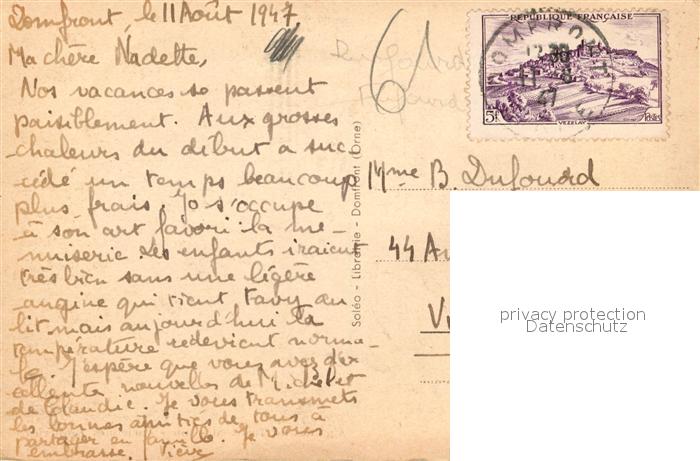 Domfront, le 11 Août 1947
Ma chère Nadette,
Nos vacances se passent
paisiblement. Aux grosses
chaleurs du début a suc-
cédé un temps beaucoup
plus frais. Jo s'occupe
à son art favori : la me-
nuiserie. Les enfants iraient
très bien sans une légère
angine qui tient Tavy au
lit mais aujourd'hui la
température redevient norma-
le. J'espère que vous avez d'ex
cellentes nouvelles de Michel et
de Claudie. Je vous transmets
les bonnes amitiés de tous à
partager en famille. Je vous
embrasse.
6
RÉPUBLIQUE FRANÇAISE
DOMFRONT
5f
VEZELAY
Mme B. Dufourd
44 A
V
Soléo - Librairie - Domfront (Orne)
privacy protection
Datenschutz